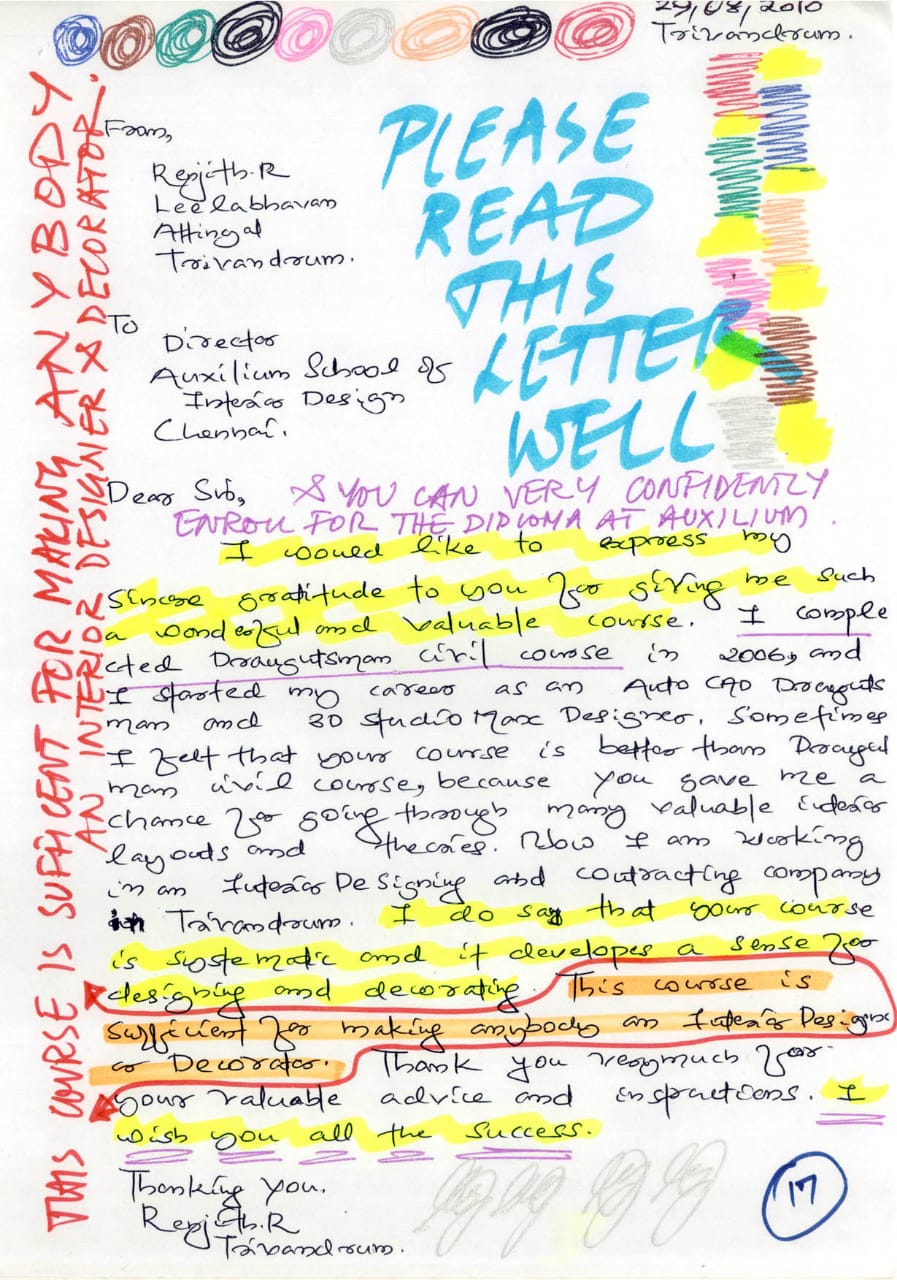 29/08/2010
Trivandrum.
From,
Renjith.R
Leelabhavan
Attingal
Trivandrum.
PLEASE
READ
THIS
LETTER
WELL
To
Director
Auxilium School of
Interior Design
Chennai.
Dear Sir,
& YOU CAN VERY CONFIDENTLY
ENROLL FOR THE DIPLOMA AT AUXILIUM.
I would like to express my
sincere gratitude to you for giving me such
a wonderful and valuable course. I comple
cted Draugutsman civil course in 2006, and
I started my career as an Auto CAD Drauguts
man and 3D Studio Max Designer. Sometimes
I felt that your course is better than Draugut
man civil course, because you gave me a
chance for going through many valuable interior
layouts and theories. Now I am working
in an Interior Designing and contracting company
in Trivandrum. I do say that your course
is systematic and it developes a sense for
designing and decorating. This course is
sufficient for making anybody an Interior Designer
or Decorator. Thank you verymuch for
your valuable advice and inspractions. I
wish you all the success.
Thanking you,
Renjith.R
Trivandrum.
17
THIS COURSE IS SUFFICENT FOR MAKING ANYBODY
AN INTERIOR DESIGNER & DECORATOR.